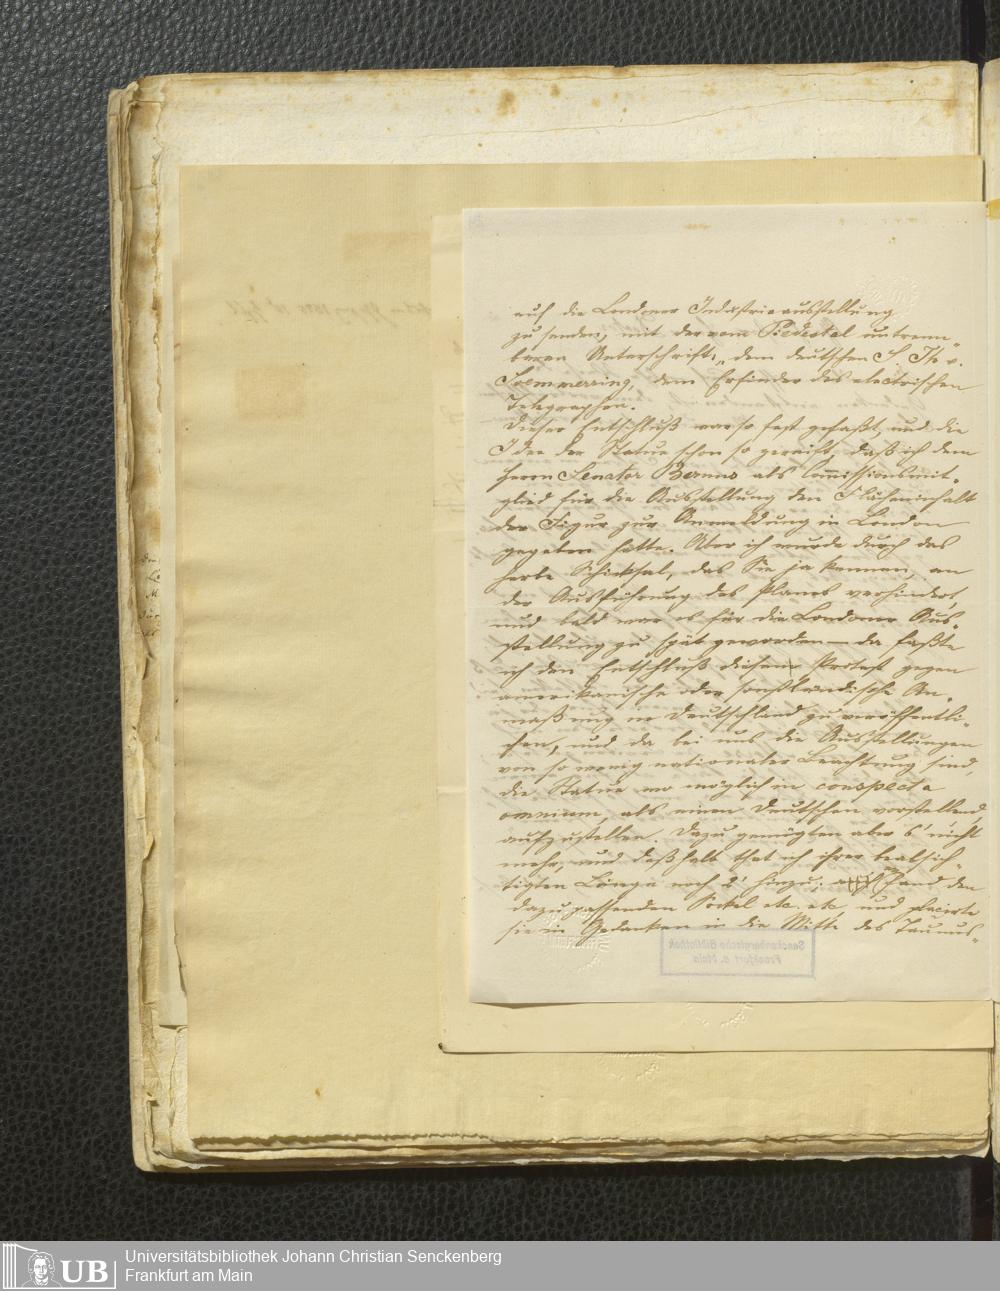 auf die Londoner Industrieausstellung
zu senden, mit der vom Piedestal untrenn-
baren Unterschrift: „dem deutschen S. Th. v.
Soemmerring, dem Erfinder des electrischen
Telegraphen.
Dieser Entschluß war so fest gefaßt, und die
Idee der Statue schon so gereift, daß ich dem
Herrn Senator Bernus als Commissionsmit-
glied für die Ausstellung den Flächeninhalt
der Figur zur Anmeldung in London
gegeben hatte. Aber ich wurde durch das
herbe Schicksal, das Sie ja kennen, an
der Ausführung des Planes verhindert,
und bald war es für die Londoner Aus-
stellung zu spät geworden — da faßte
ich den Entschluß diesen Protest gegen
amerikanische oder sonstländische An-
maßung in Deutschland zu veröffentli-
chen, und da bei uns die Ausstellungen
von so wenig nationaler Beachtung sind,
die Statue wo möglich in conspectu
omnium, als einen Deutschen vorstellend
aufzustellen. Dazu genügten aber 6' nicht
mehr, und deßhalb that ich ihrer beabsich-
tigten Länge noch 2' hinzu; fand den
dazu passenden Sockel etc. etc. und placirte
sie in Gedanken in die Mitte des Taunus-
Senckenbergische Bibliothek
Frankfurt a. Main
UB
Universitätsbibliothek Johann Christian Senckenberg
Frankfurt am Main